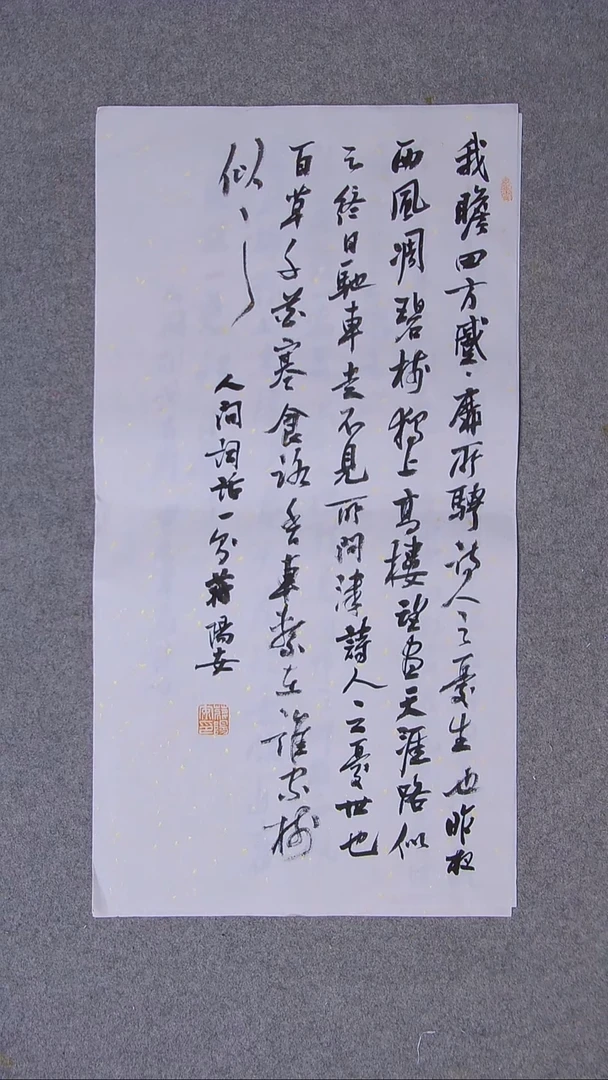 我瞻四方蹙々靡所騁詩人之憂生也昨夜
西風凋碧樹獨上高樓望盡天涯路似
之終日馳車走不見所問津詩人之憂世也
百草千花寒食路香車繫在誰家樹
似之
人間詞話一則蔣陽安